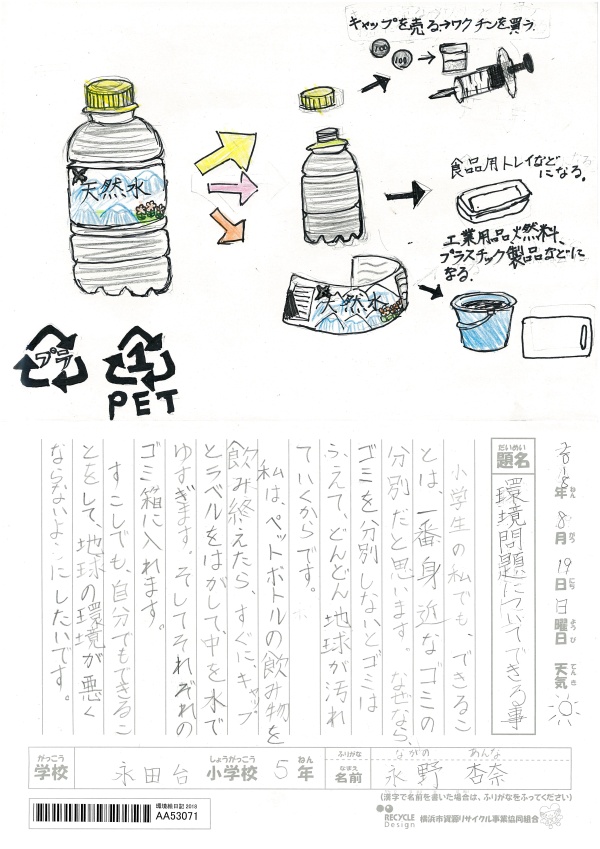 キャップを売る→ワクチンを買う.
100
100
天然水
食品用トレイなど
になる。
工業用品燃料、
プラスチック製品などに
なる.
天然水
プラ
1
PET
2018年 8月 19日 日曜日 天気
ねん がつ にち ようび てんき
だいめい
題名
環境問題についてできる事
小学生の私でも、できるこ
とは、一番身近なゴミの
分別だと思います。なぜなら、
ゴミを分別しないとゴミは
ふえて、どんどん地球が汚れ
ていくからです。
私は、ペットボトルの飲み物を
飲み終えたら、すぐに、キャップ
とラベルをはがして、中を水で
ゆすぎます。そしてそれぞれの
ゴミ箱に入れます。
すこしでも、自分でもできるこ
とをして、地球の環境が悪く
ならないようにしたいです。
がっこう しょうがっこう ねん ふりがな ながの あんな
学校 永田台 小学校 5年 なまえ 名前 永野 杏奈
(漢字で名前を書いた場合は、ふりがなをふってください)
環境絵日記 2018
AA53071
RECYCLE Design 横浜市資源リサイクル事業協同組合